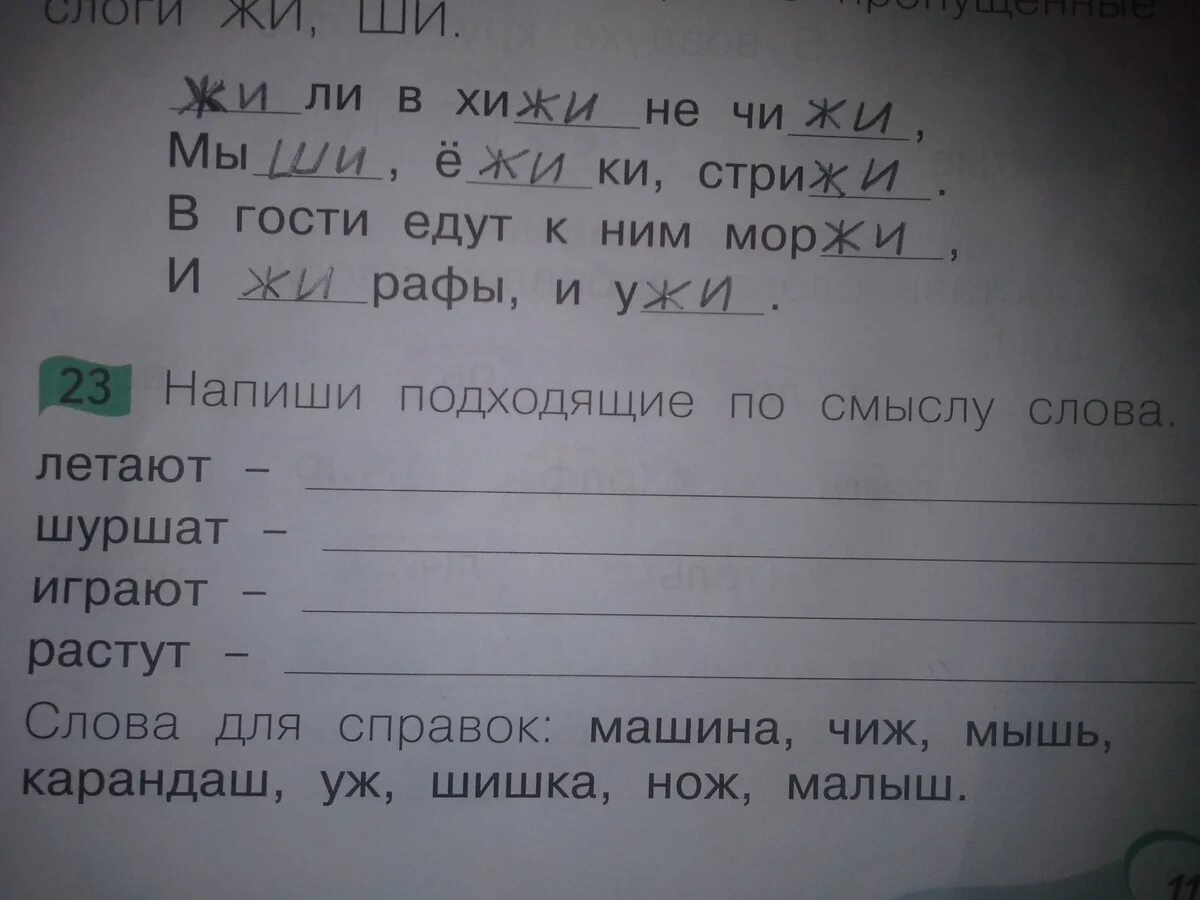 слоги ЖИ, ШИ. пропущенные
жи ли в хижи не чи жи,
Мы ши, ё жи ки, стрижи.
В гости едут к ним моржи,
И жи рафы, и ужи.
23 Напиши подходящие по смыслу слова.
летают –
шуршат –
играют –
растут –
Слова для справок: машина, чиж, мышь,
карандаш, уж, шишка, нож, малыш.
11